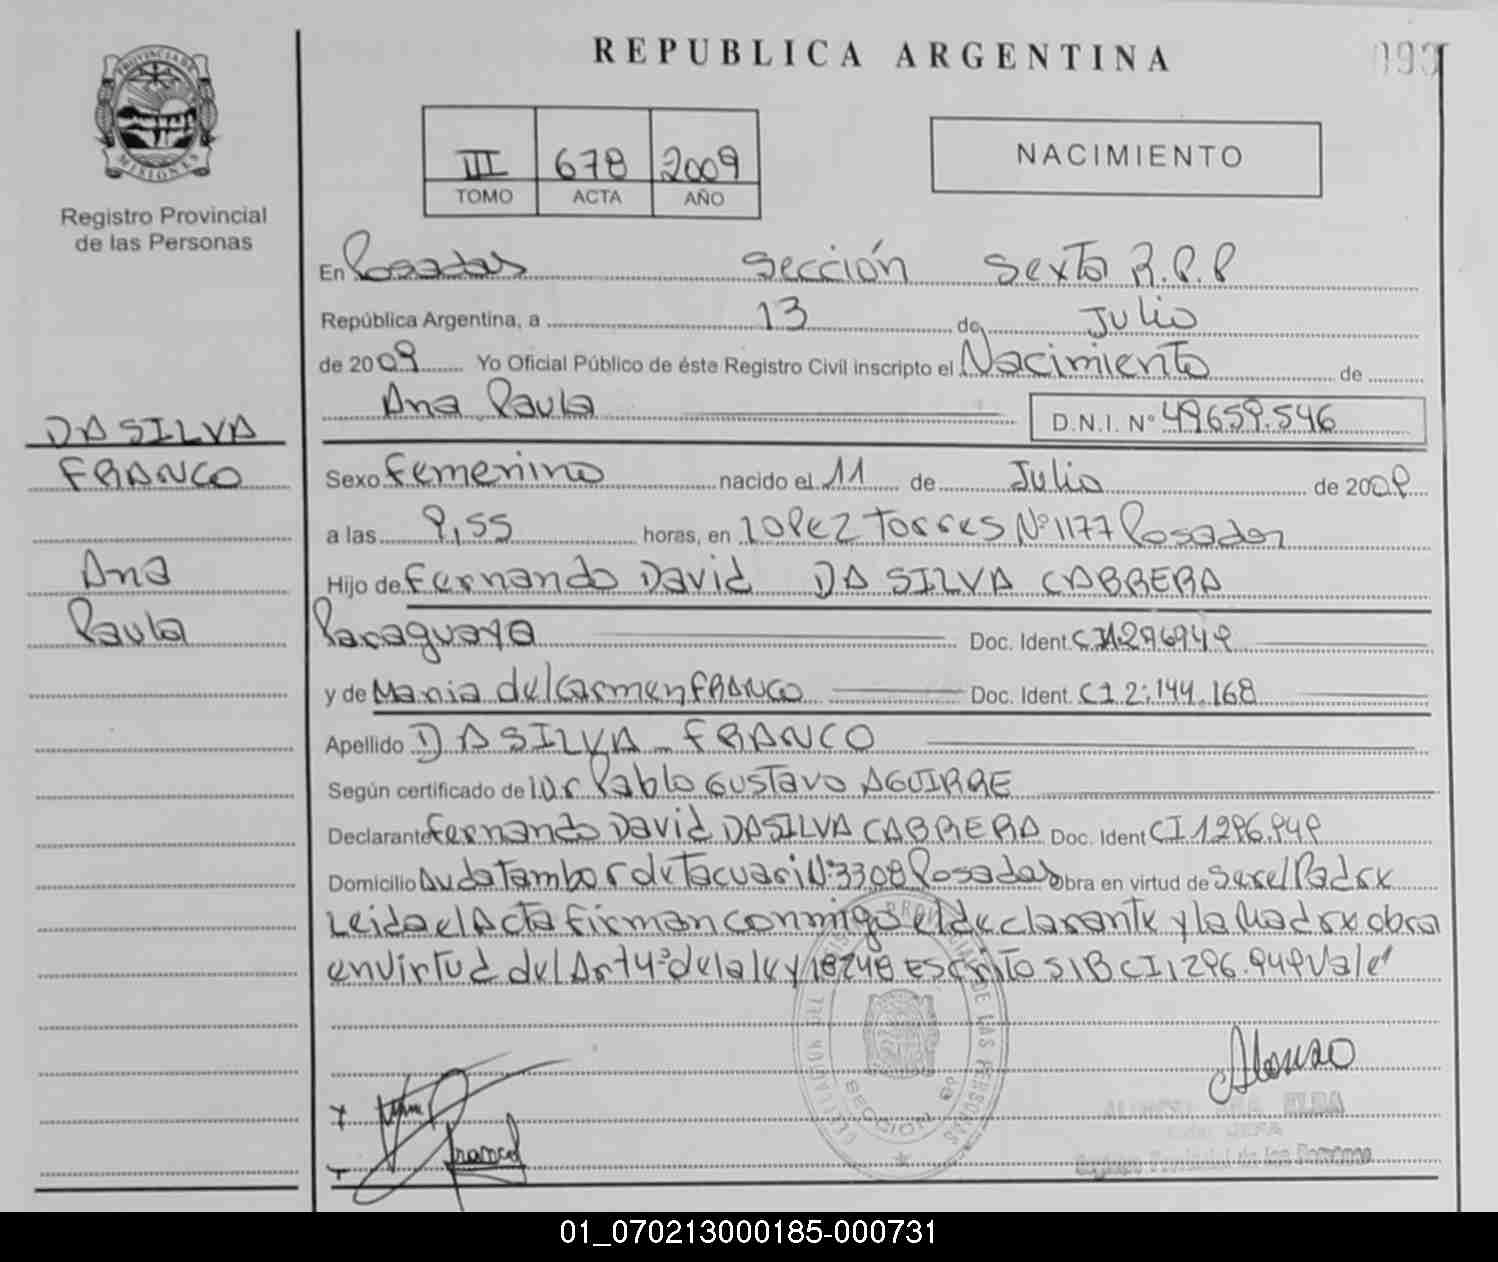 REPUBLICA ARGENTINA
093
PROVINCIA DE MISIONES
Registro Provincial
de las Personas
III 678 2009
TOMO ACTA AÑO
NACIMIENTO
En Posadas Sección Sexta R.P.P
República Argentina, a 13 de Julio
de 2009 Yo Oficial Público de éste Registro Civil inscripto el Nacimiento de
Ana Paula D.N.I. Nº 49659.546
DA SILVA
FRANCO
Ana
Paula
Sexo Femenino nacido el 11 de Julio de 2009
a las 9,55 horas, en LOPEZ Torres Nº 1177 Posadas
Hijo de Fernando David DA SILVA CABRERA
Paraguaya Doc. Ident. CI1.296949
y de Maria del Carmen FRANCO Doc. Ident. CI 2.144.168
Apellido DA SILVA FRANCO
Según certificado de Pablo Gustavo AGUIRRE
Declarante Fernando David DA SILVA CABRERA Doc. Ident CI 1296.949
Domicilio Avda Tambor de Tacuari Nº 3308 Posadas Obra en virtud de Ser el Padre
Leida el Acta firman conmigo el declarante y la Madre obra
en virtud del Art 4º de la ley 18248 Escrito S/B CI 1296.949 Vale
REGISTRO PROVINCIAL DE LAS PERSONAS
SECCION 6º
Franco
Alonso
ELBA
JEFA
Registro Provincial de las Personas
01_070213000185-000731